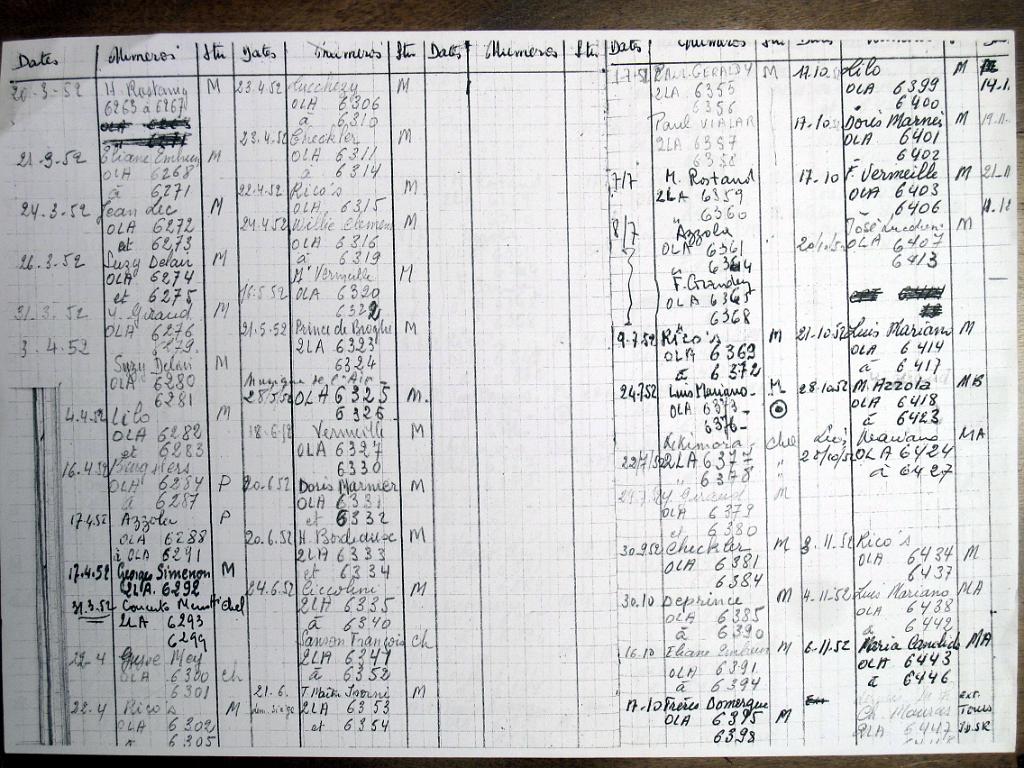 Dates Numeros Stu Dates Numeros Stu Dates Numeros Stu
20-3-52 H. Rostaing M
6263 à 6267
21-3-52 Eliane Embrun M
OLA 6268
à 6271
24-3-52 Jean Lec M
OLA 6272
et 6273
26-3-52 Suzy Delair M
OLA 6274
et 6275
31-3-52 Y. Giraud M
OLA 6276
6279.
3-4-52 Suzy Delair M
OLA 6280
6281
4.4.52 Lilo M
OLA 6282
et 6283
16.4.52
OLA 6284 P
à 6287
17.4.52 Azzola P
OLA 6288
à OLA 6291
17.4.52 Georges Simenon M
2LA. 6292
31.3.52 chel
2LA 6293
6299
22-4
OLA 6300 ch
6301
22-4 Rico's M
OLA 6302
à 6305
23.4.52 Lucchesy M
OLA 6306
à 6310
23.4.52 Checkler M
OLA 6311
à 6314
22.4.52 Rico's M
OLA 6315
24.4.52 Willie Clement M
OLA 6316
à 6319
Vermeille M
16.5.52 OLA 6320
6322
21.5.52 Prince de Broglie M
2LA 6323
6324
Musique de l'Air
28.5.52 OLA 6325 M.
6326
18-6-52 Vermeille M
OLA 6327
6330
20.6.52 Doris Marnier M
OLA 6331
et 6332
20.6.52 H. Bordeaux M
2LA 6333
et 6334
24.6.52 Ciccolini M
2LA 6335
à 6340
Sanson François ch
2LA 6341
à 6352
21-6. T. Maitre Isorni M
2LA 6353
et 6354
Dates Numeros
1-7-52 PAUL GERALDY M
2LA 6355
6356
Paul VIALAR
2LA 6357
6358
7/7 M. Rostand
2LA 6359
6360
8/7 Azzola
OLA 6361
à 6364
F. Grandey
OLA 6365
6368
9.7.52 Rico's M
OLA 6369
à 6372
24.7.52 Luis Mariano- M
OLA 6373-
6376-
Kikimora- chel
22/7/52 2LA 6377 "
" 6378 "
29.7.52 Y Giraud M
OLA 6379
et 6380
30.9.52 Checkler M
OLA 6381
6384
30.10 Deprince M
OLA 6385
à 6390
16.10 Eliane Embrun M
OLA 6391
à 6394
17-10 Frères Domergue
OLA 6395 M
6398
17.10.52 Lilo M
OLA 6399 14.1.
6400
17-10.52 Doris Marnier M 19.11.
OLA 6401
6402
17.10 F. Vermeille M
OLA 6403
6406
José Lucchesi M
20/10/52 OLA 6407
6413
21-10.52 Luis Mariano M
OLA 6414
à 6417
28.10.52 M. Azzola MB
OLA 6418
à 6423
Luis Mariano MA
28/10/52 OLA 6424
à 6427
3.11.52 Rico's M
OLA 6434
6437
4-11-52 Luis Mariano MA
OLA 6438
6442
6.11.52 Maria Candido MA
OLA 6443
à 6446
ext.
Ch. Maurras Tours
2LA 6447